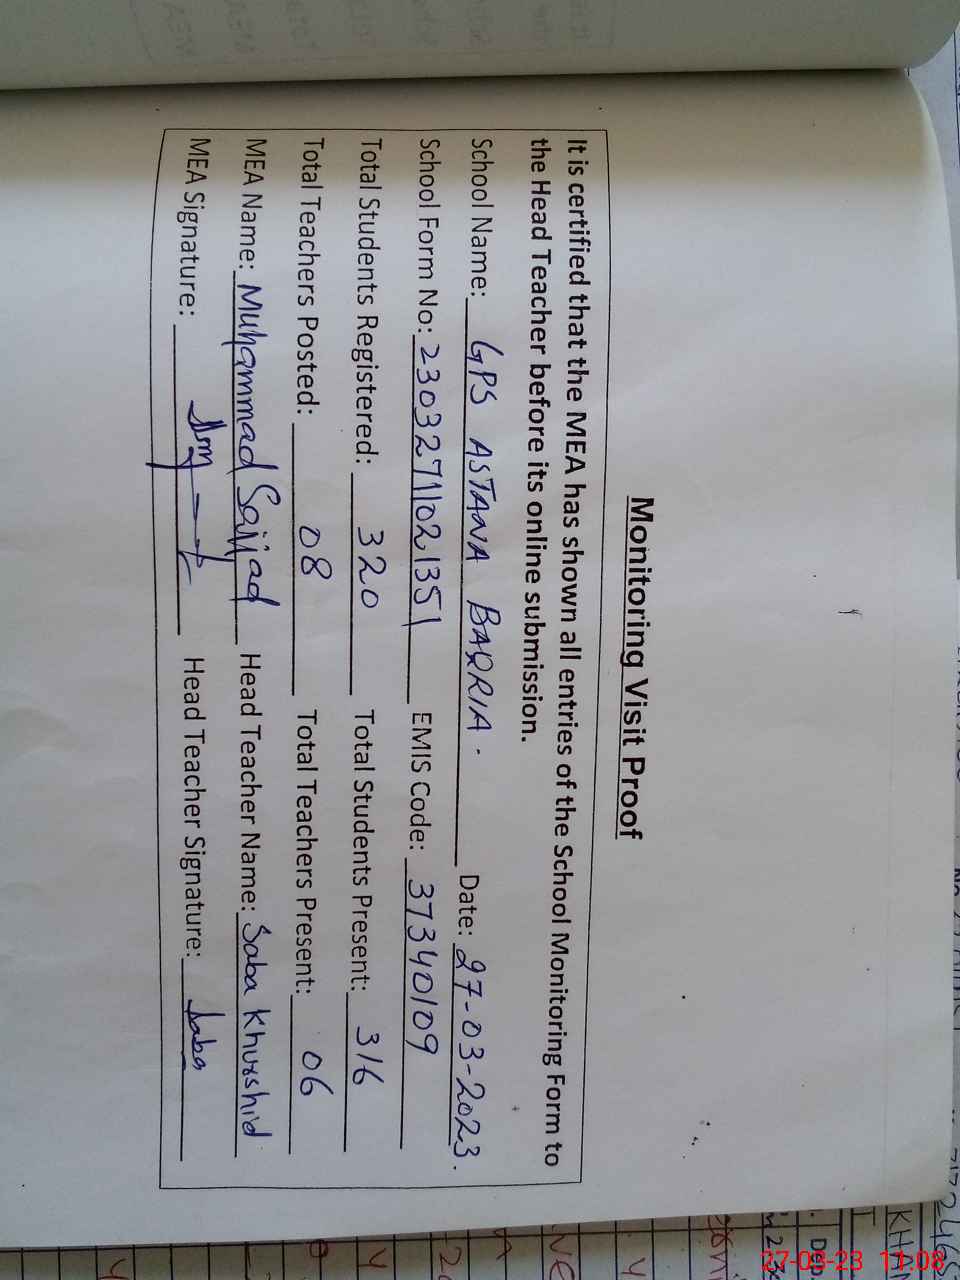 Monitoring Visit Proof
It is certified that the MEA has shown all entries of the School Monitoring Form to
the Head Teacher before its online submission.
School Name: GPS ASTANA BARRIA. Date: 27-03-2023.
School Form No: 23032711021351 EMIS Code: 37340109
Total Students Registered: 320 Total Students Present: 316
Total Teachers Posted: 08 Total Teachers Present: 06
MEA Name: Muhammad Sajjad Head Teacher Name: Saba Khurshid
MEA Signature: Head Teacher Signature: Saba
27-03-23 11:08